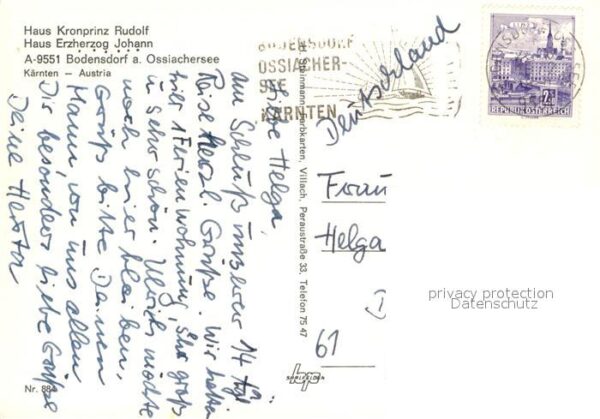 Haus Kronprinz Rudolf
Haus Erzherzog Johann
A-9551 Bodensdorf a. Ossiachersee
Kärnten – Austria
Liebe Helga,
am Schluß unserer 14 täg.
Reise Herzl. Grüße. Wir hatten
hier 1 Ferienwohnung, sehr groß
u. sehr schön. Ulrich möchte
noch hier bleiben.
Grüß bitte Deinen
Mann von uns allen
Dir besonders liebe Grüße
Deine Herta
Nr. 884
Steinmann-Farbkarten, Villach, Peraustraße 33, Telefon 75 47
BODENSDORF
OSSIACHER-
SEE
KÄRNTEN
LINZ
2S
REPUBLIK ÖSTERREICH
Deutschland
Frau
Helga
61
privacy protection
Datenschutz